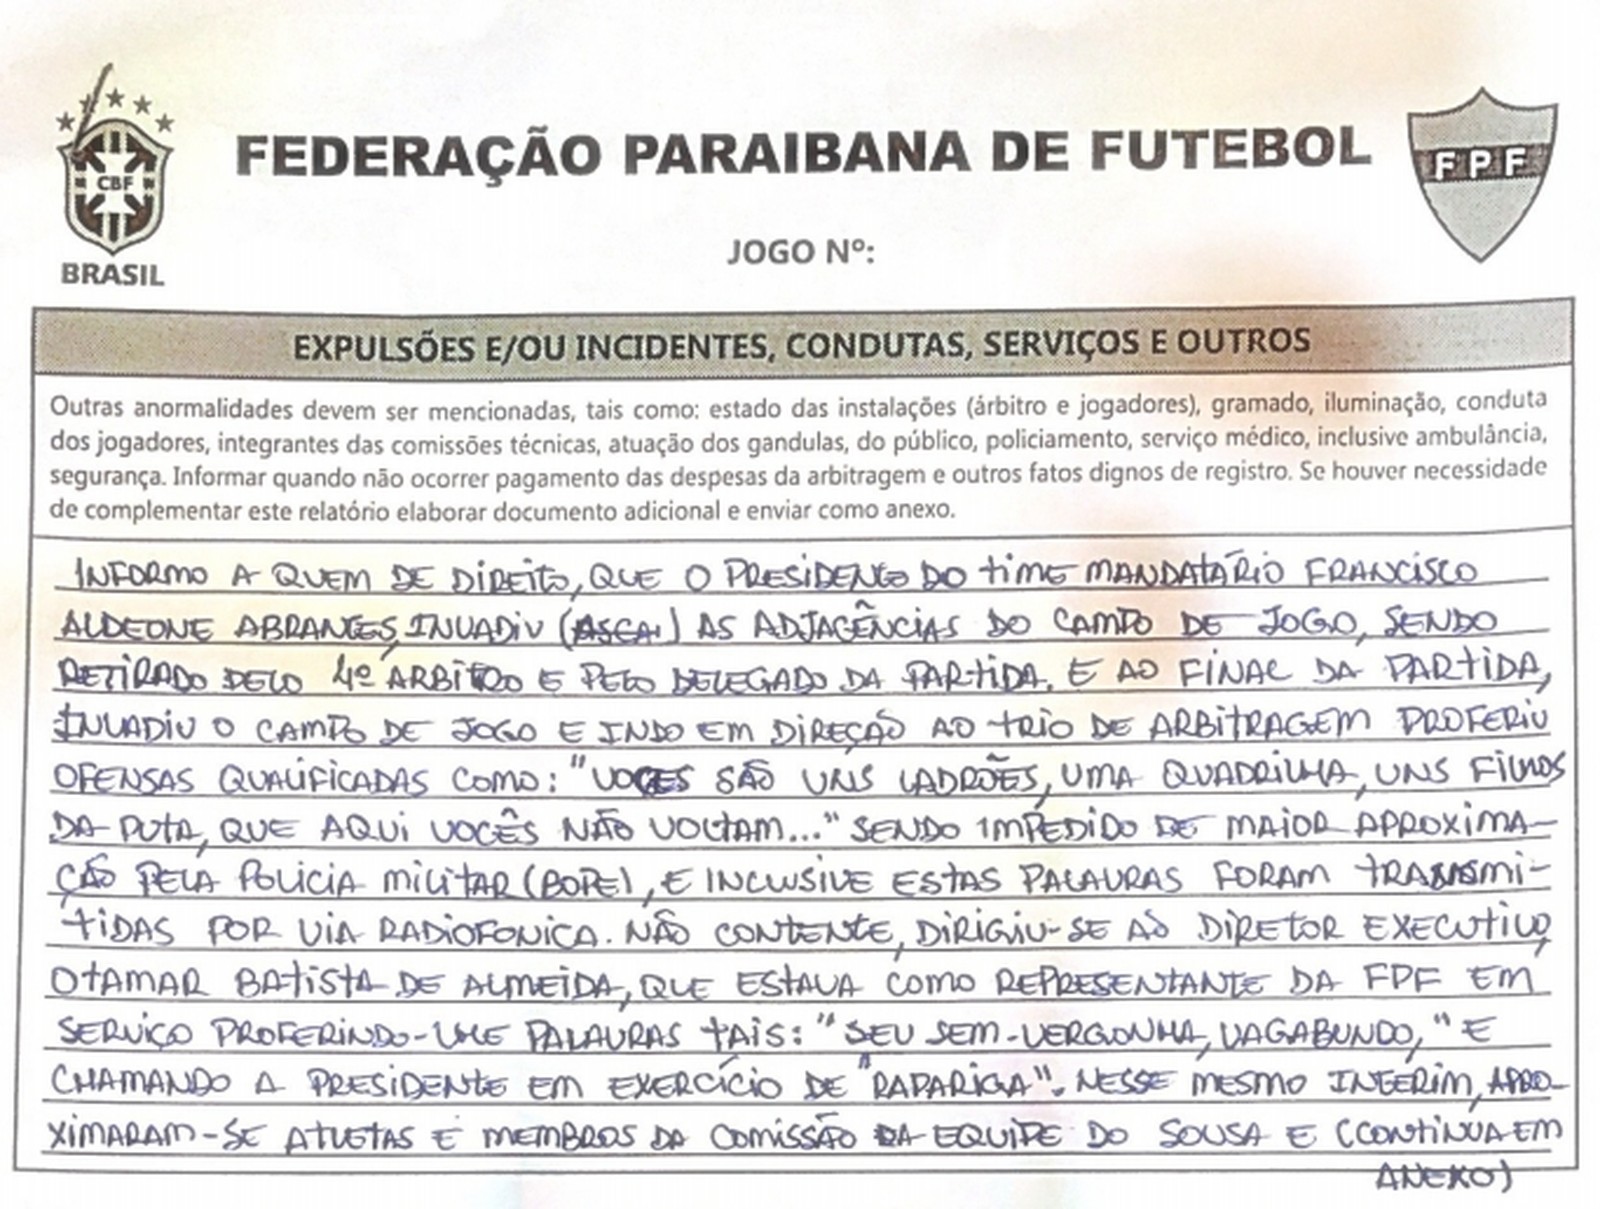 CBF
BRASIL
FEDERAÇÃO PARAIBANA DE FUTEBOL
FPF
JOGO Nº:
EXPULSÕES E/OU INCIDENTES, CONDUTAS, SERVIÇOS E OUTROS
Outras anormalidades devem ser mencionadas, tais como: estado das instalações (árbitro e jogadores), gramado, iluminação, conduta
dos jogadores, integrantes das comissões técnicas, atuação dos gandulas, do público, policiamento, serviço médico, inclusive ambulância,
segurança. Informar quando não ocorrer pagamento das despesas da arbitragem e outros fatos dignos de registro. Se houver necessidade
de complementar este relatório elaborar documento adicional e enviar como anexo.
INFORMO A QUEM DE DIREITO, QUE O PRESIDENTE DO TIME MANDATÁRIO FRANCISCO
ALDEONE ABRANTES, INVADIU () AS ADJACÊNCIAS DO CAMPO DE JOGO, SENDO
RETIRADO PELO 4º ÁRBITRO E PELO DELEGADO DA PARTIDA. E AO FINAL DA PARTIDA,
INVADIU O CAMPO DE JOGO E INDO EM DIREÇÃO AO TRIO DE ARBITRAGEM PROFERIU
OFENSAS QUALIFICADAS COMO: "VOCES SÃO UNS LADRÕES, UMA QUADRILHA, UNS FILHOS
DA PUTA, QUE AQUI VOCÊS NÃO VOLTAM..." SENDO IMPEDIDO DE MAIOR APROXIMA-
ÇÃO PELA POLICIA MILITAR (BOPE), E INCLUSIVE ESTAS PALAVRAS FORAM TRANSMI-
TIDAS POR VIA RADIOFONICA. NÃO CONTENTE, DIRIGIU-SE AO DIRETOR EXECUTIVO,
OTAMAR BATISTA DE ALMEIDA, QUE ESTAVA COMO REPRESENTANTE DA FPF EM
SERVIÇO PROFERINDO-LHE PALAVRAS TAIS: "SEU SEM-VERGONHA, VAGABUNDO," E
CHAMANDO A PRESIDENTE EM EXERCÍCIO DE "RAPARIGA". NESSE MESMO INTERIM, APRO-
XIMARAM-SE ATLETAS E MEMBROS DA COMISSÃO DA EQUIPE DO SOUSA E (CONTINUA EM
ANEXO)